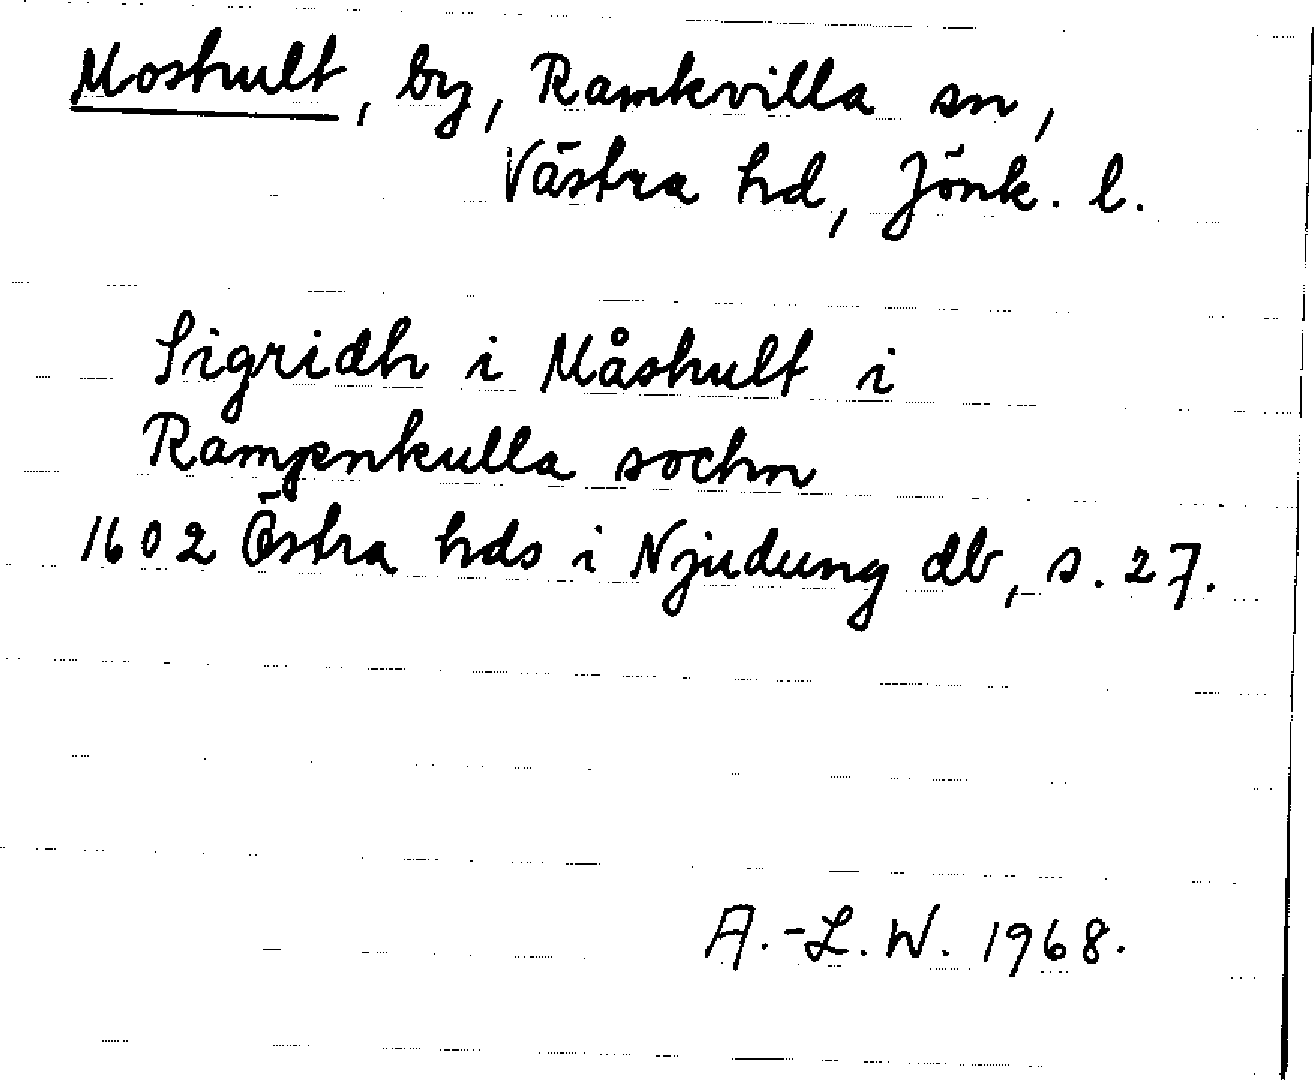 Moshult, by, Ramkvilla sn,
Västra hd, Jönk. l.
Sigridh i Måshult i
Rampenkulla sochn
1602 Östra hds i Njudung db, s. 27.
A.-L. W. 1968.